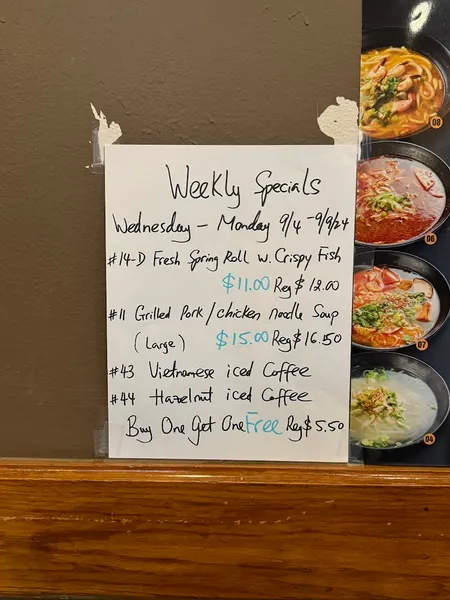 Weekly Specials
Wednesday – Monday 9/4 - 9/9/24
#14-D Fresh Spring Roll w. Crispy Fish
$11.00 Reg $12.00
#11 Grilled Pork/chicken noodle Soup
(Large) $15.00 Reg $16.50
#43 Vietnamese iced Coffee
#44 Hazelnut iced Coffee
Buy One Get One Free Reg $5.50
08
06
07
04